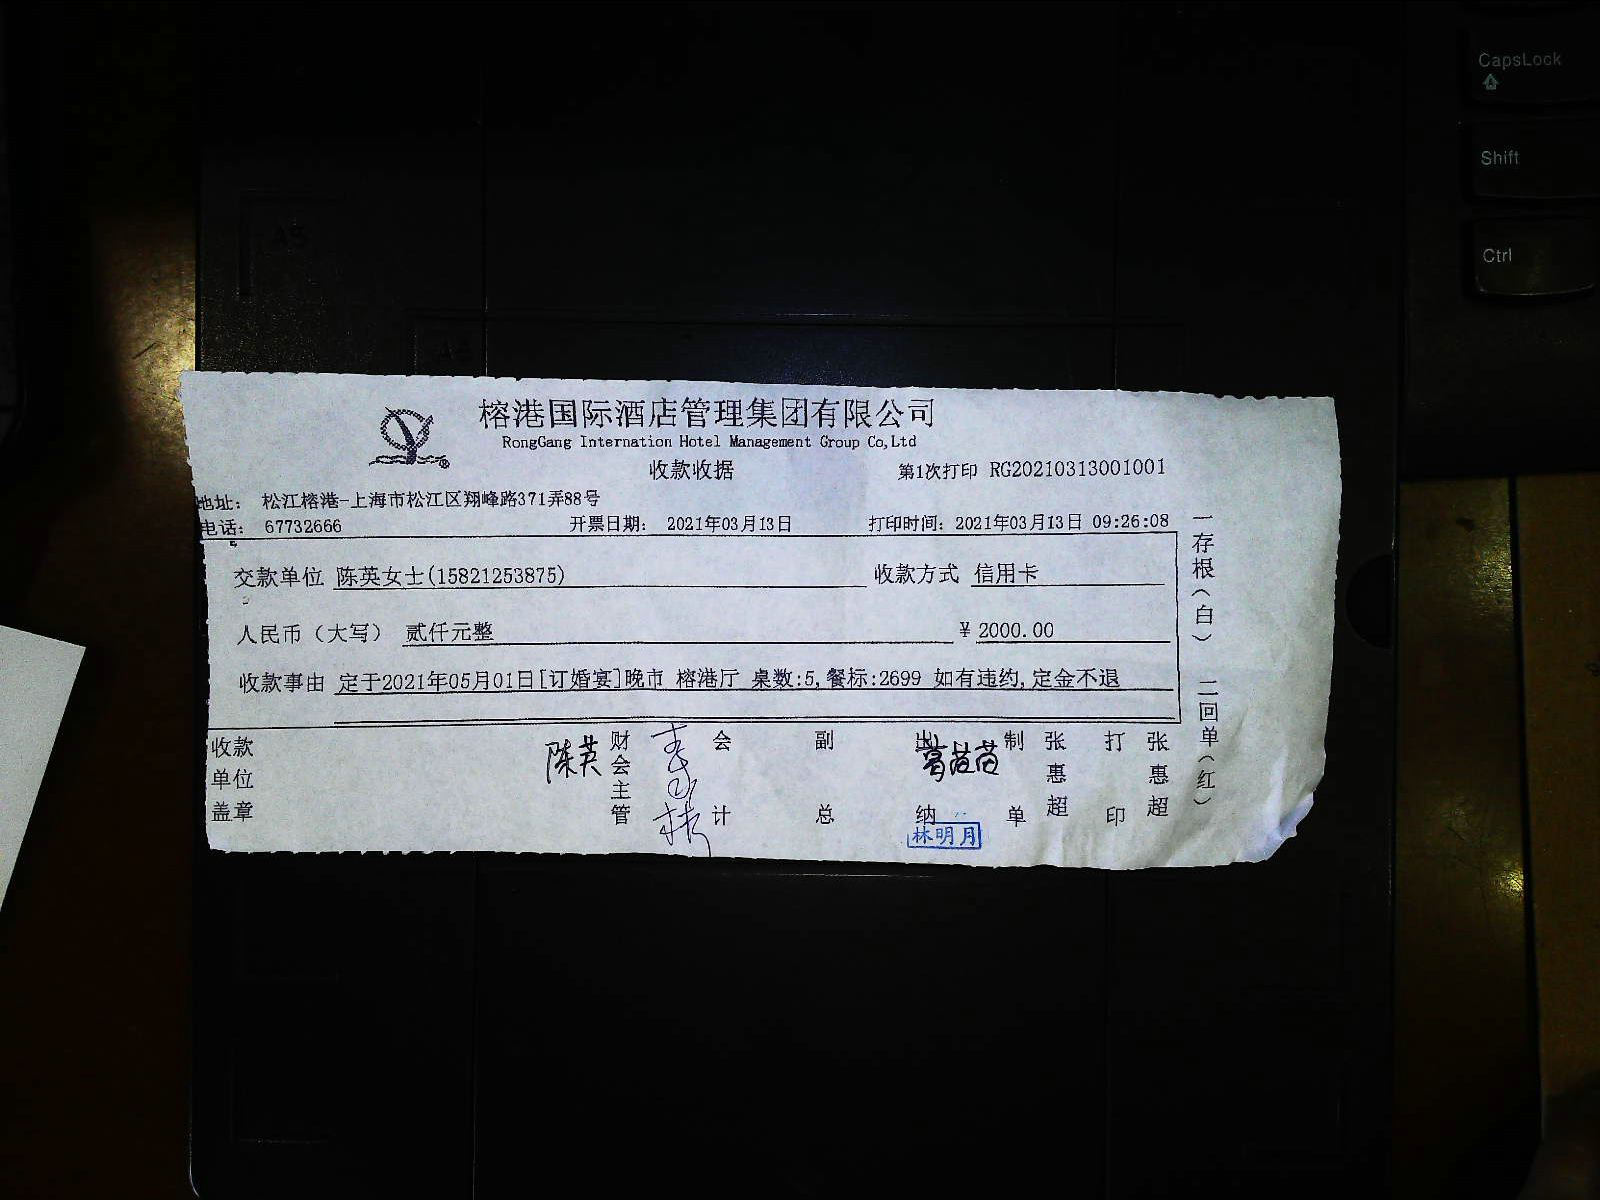 CapsLock
Shift
Ctrl
榕港国际酒店管理集团有限公司
RongGang Internation Hotel Management Group Co,Ltd
收款收据 第1次打印 RG20210313001001
地址: 松江榕港-上海市松江区翔峰路371弄88号
电话: 67732666 开票日期: 2021年03月13日 打印时间: 2021年03月13日 09:26:08
交款单位 陈英女士(15821253875) 收款方式 信用卡
人民币（大写） 贰仟元整 ¥ 2000.00
收款事由 定于2021年05月01日[订婚宴]晚市 榕港厅 桌数:5,餐标:2699 如有违约,定金不退
收款单位盖章 陈英 财会主管 会计 副总 出纳 葛苗苗 制单 张惠超 打印 张惠超
林明月
一存根（白） 二回单（红）